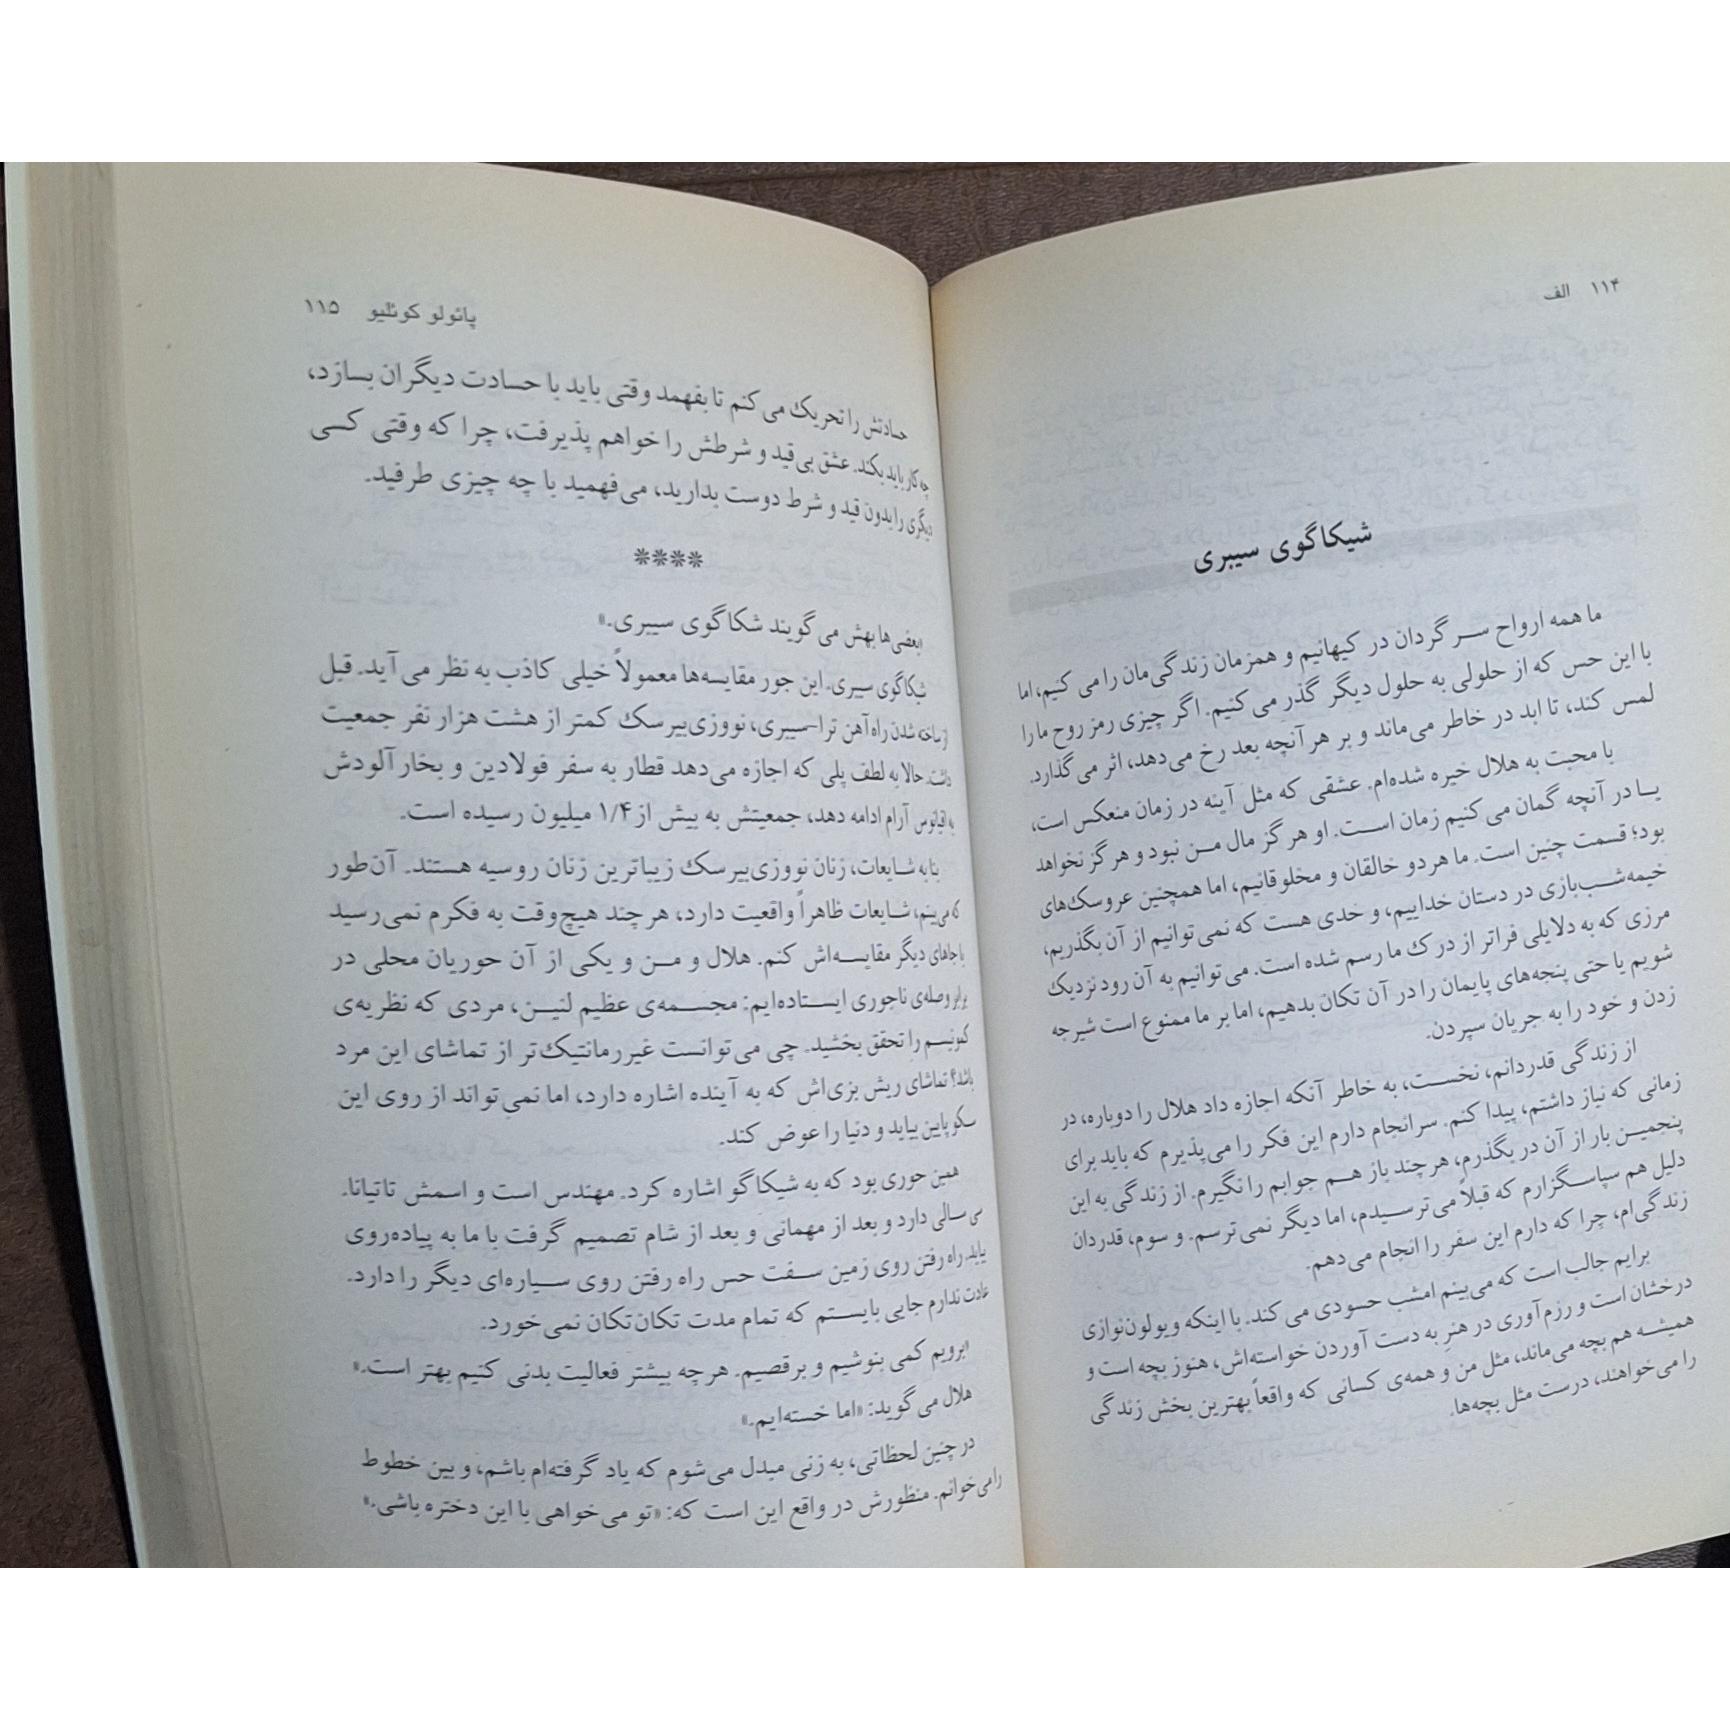 ۱۱۴ الف
شیکاگوی سیبری
ما همه ارواح سرگردان در کیهانیم و همزمان زندگی‌مان را می‌کنیم، اما
با این حس که از حلولی به حلول دیگر گذر می‌کنیم. اگر چیزی رمز روح ما را
لمس کند، تا ابد در خاطر می‌ماند و بر هر آنچه بعد رخ می‌دهد، اثر می‌گذارد.
با محبت به هلال خیره شده‌ام. عشقی که مثل آینه در زمان منعکس است،
یا در آنچه گمان می‌کنیم زمان است. او هرگز مال من نبود و هرگز نخواهد
بود؛ قسمت چنین است. ما هر دو خالقان و مخلوقانیم، اما همچنین عروسک‌های
خیمه‌شب‌بازی در دستان خداییم، و خدی هست که نمی‌توانیم از آن بگذریم،
مرزی که به دلایلی فراتر از درک ما رسم شده است. می‌توانیم به آن رود نزدیک
شویم یا حتی پنجه‌های پایمان را در آن تکان بدهیم، اما بر ما ممنوع است شیرجه
زدن و خود را به جریان سپردن.
از زندگی قدردانم، نخست، به خاطر آنکه اجازه داد هلال را دوباره، در
زمانی که نیاز داشتم، پیدا کنم. سرانجام دارم این فکر را می‌پذیرم که باید برای
پنجمین بار از آن در بگذرم، هرچند باز هم جوابم را نگیرم. از زندگی به این
دلیل هم سپاسگزارم که قبلاً می‌ترسیدم، اما دیگر نمی‌ترسم. و سوم، قدردان
زندگی‌ام، چرا که دارم این سفر را انجام می‌دهم.
برایم جالب است که می‌بینم امشب حسودی می‌کند. با اینکه ویولون‌نوازی
درخشان است و رزم‌آوری در هنر به دست آوردن خواسته‌اش، هنوز بچه است و
همیشه هم بچه می‌ماند، مثل من و همه‌ی کسانی که واقعاً بهترین بخش زندگی
را می‌خواهند، درست مثل بچه‌ها.
پائولو کوئلیو ۱۱۵
حسادتش را تحریک می‌کنم تا بفهمد وقتی باید با حسادت دیگران بسازد،
چه کار باید بکند. عشق بی‌قید و شرطش را خواهم پذیرفت، چرا که وقتی کسی
دیگری را بدون قید و شرط دوست بدارید، می‌فهمید با چه چیزی طرفید.
****
«بعضی‌ها بهش می‌گویند شکاگوی سیبری.»
شکاگوی سیبری. این جور مقایسه‌ها معمولاً خیلی کاذب به نظر می‌آید. قبل
از ساخته شدن راه‌آهن ترا-سیبری، نووزی‌بیرسک کمتر از هشت هزار نفر جمعیت
داشت. حالا به لطف پلی که اجازه می‌دهد قطار به سفر فولادین و بخار آلودش
به اقیانوس آرام ادامه دهد، جمعیتش به بیش از ۱/۴ میلیون رسیده است.
بنا به شایعات، زنان نووزی‌بیرسک زیباترین زنان روسیه هستند. آن‌طور
که می‌بینم، شایعات ظاهراً واقعیت دارد، هرچند هیچ‌وقت به فکرم نمی‌رسید
با جاهای دیگر مقایسه‌اش کنم. هلال و من و یکی از آن حوریان محلی در
برابر وصله‌ی ناجوری ایستاده‌ایم: مجسمه‌ی عظیم لنین، مردی که نظریه‌ی
کمونیسم را تحقق بخشید. چی می‌توانست غیررمانتیک‌تر از تماشای این مرد
باشد؟ تماشای ریش بزی‌اش که به آینده اشاره دارد، اما نمی‌تواند از روی این
سکو پایین بیاید و دنیا را عوض کند.
همین حوری بود که به شیکاگو اشاره کرد. مهندس است و اسمش تاتیانا.
سی سالی دارد و بعد از مهمانی و بعد از شام تصمیم گرفت با ما به پیاده‌روی
بیاید. راه رفتن روی زمین سفت حس راه رفتن روی سیاره‌ای دیگر را دارد.
عادت ندارم جایی بایستم که تمام مدت تکان‌تکان نمی‌خورد.
«برویم کمی بنوشیم و برقصیم. هرچه بیشتر فعالیت بدنی کنیم بهتر است.»
هلال می‌گوید: «اما خسته‌ایم.»
در چنین لحظاتی، به زنی مبدل می‌شوم که یاد گرفته‌ام باشم، و بین خطوط
را می‌خوانم. منظورش در واقع این است که: «تو می‌خواهی با این دختره باشی.»